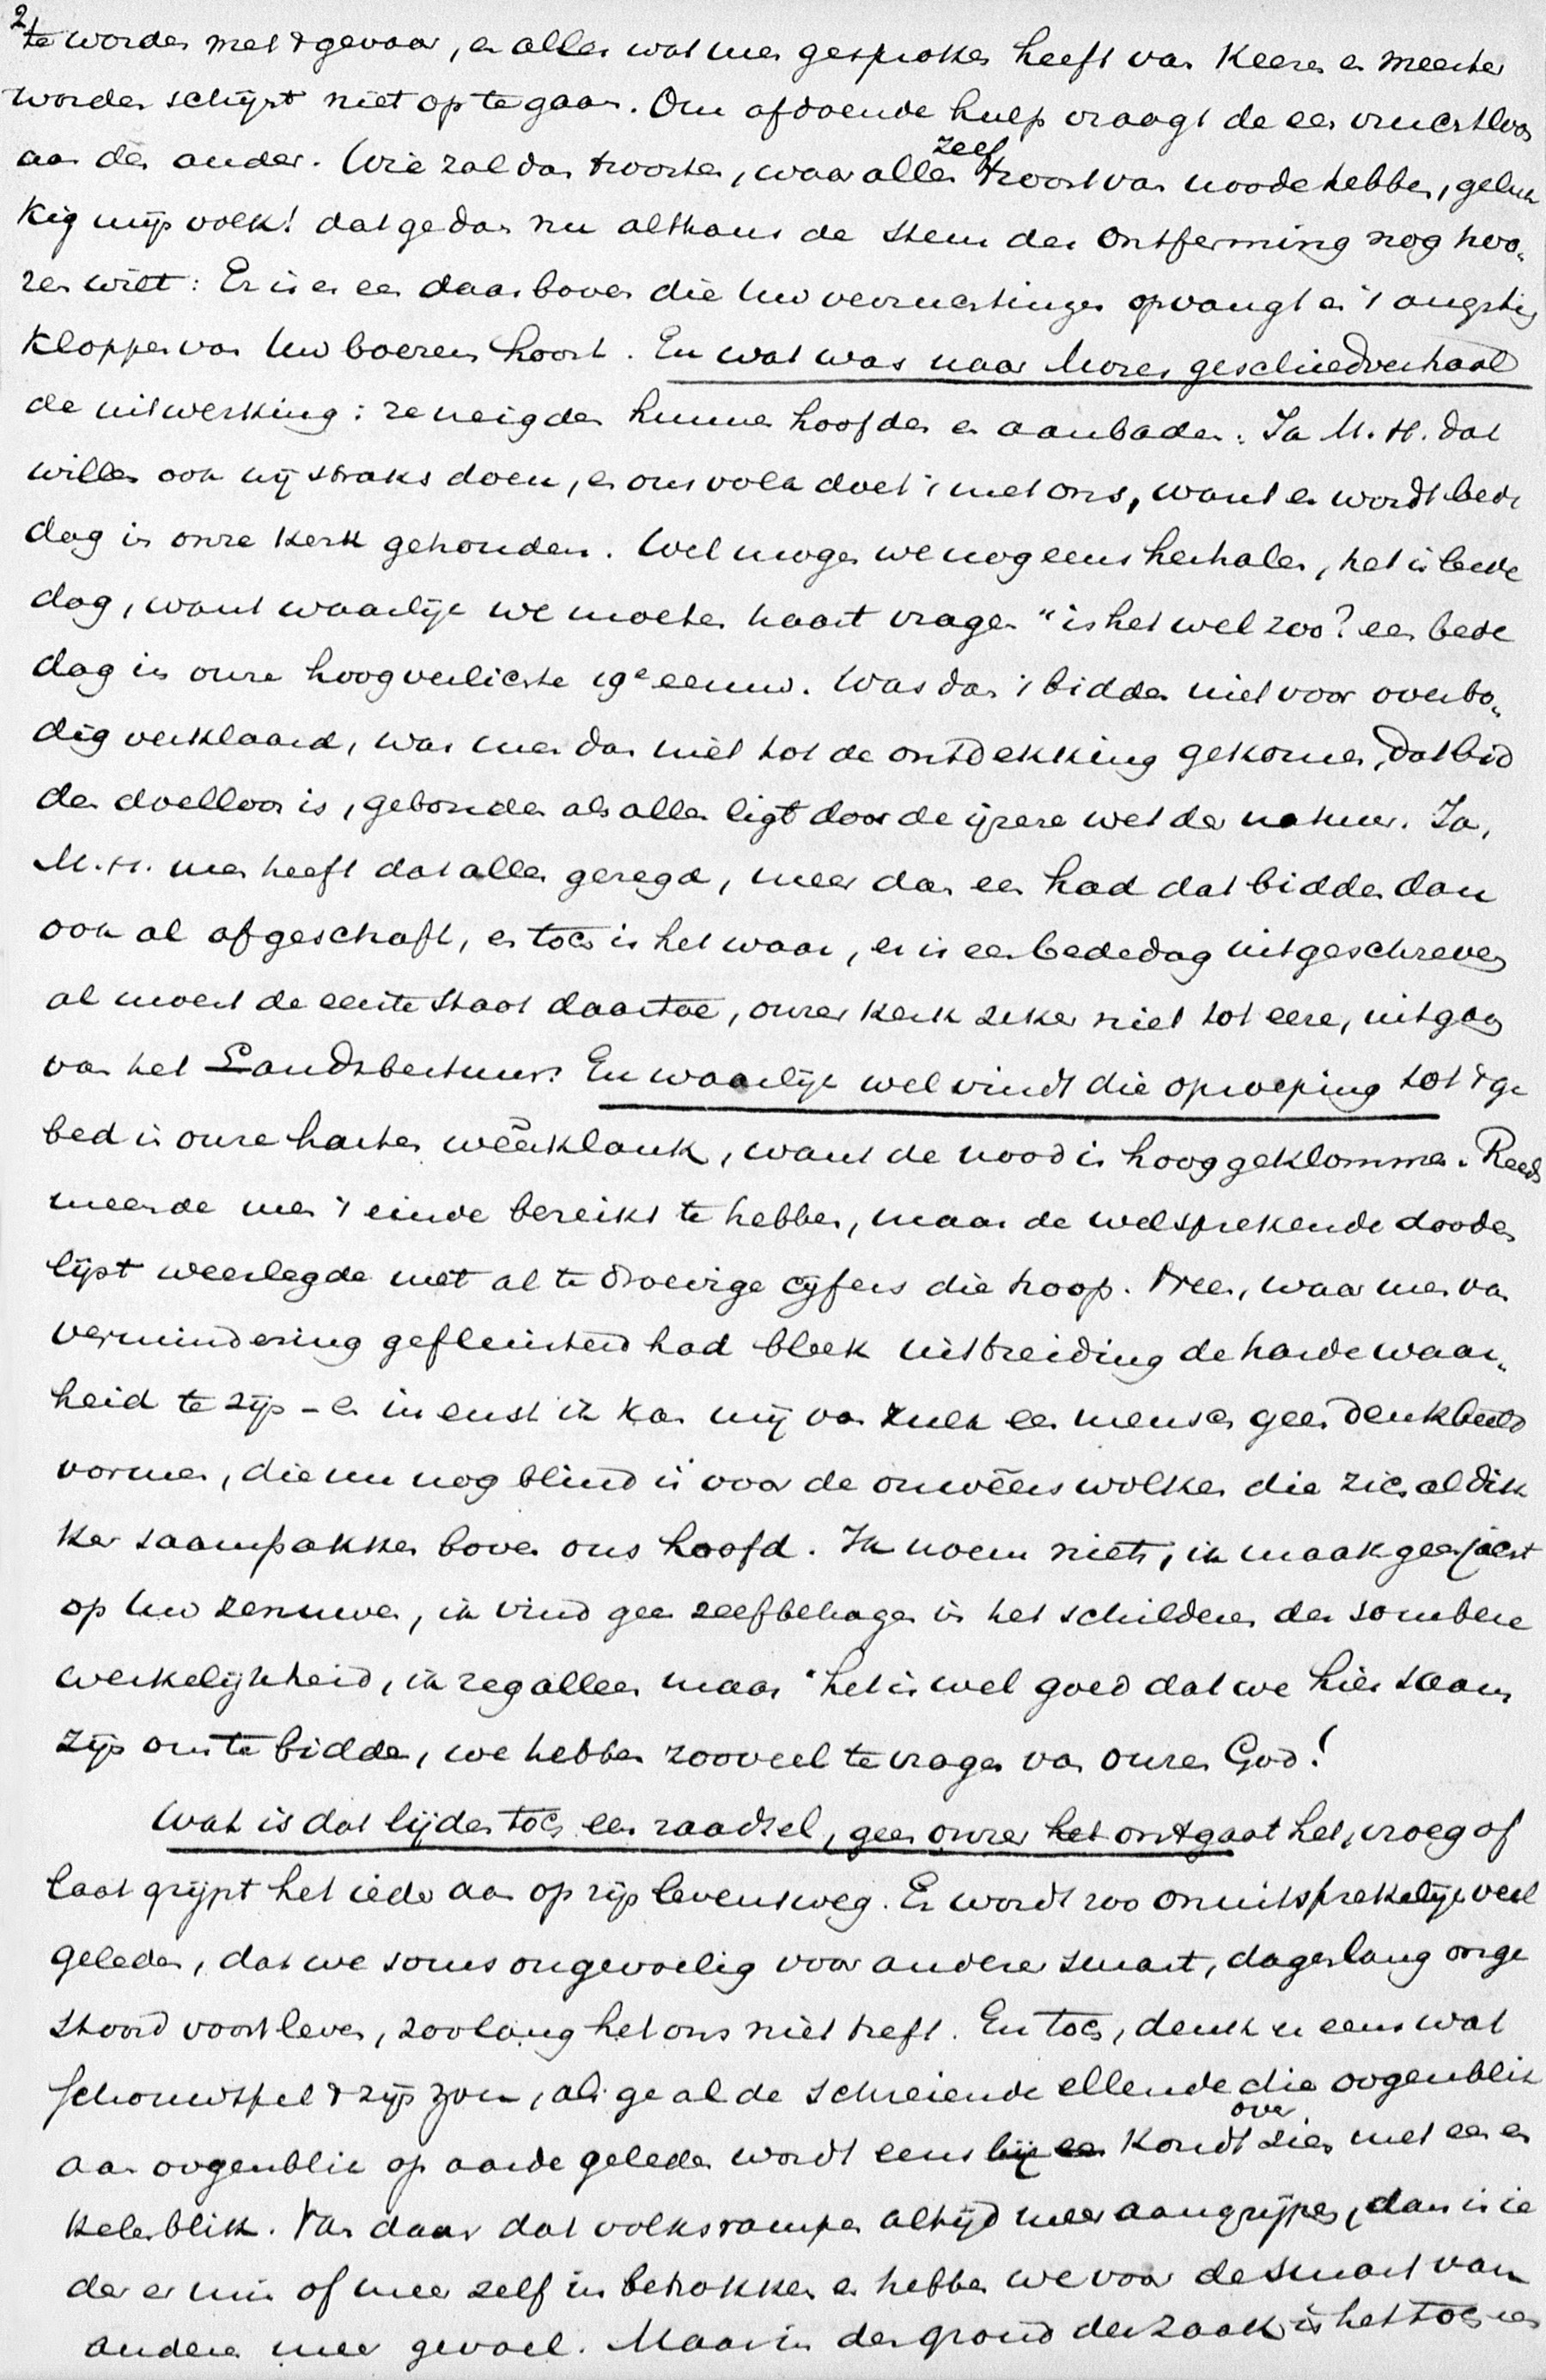 2
te worden met 't gevaar, en alles wat men gesproken heeft van keeren en meester
worden schijnt niet op te gaan. Om afdoende hulp vraagt de een vruchtloos
aan den ander. Wie zal dan troosten, waar allen zelf troost van noode hebben, geluk
kig mijn volk! dat ge dan nu althans de stem der ontferming nog hoo„
ren wilt: Er is er een daarboven die Uw verzuchtingen opvangt en 't angstig
kloppen van Uw boezem hoort. En wat was naar Mozes geschiedverhaal
de uitwerking: ze neigden hunne hoofden en aanbaden. Ja M. H. dat
willen ook wij straks doen, en ons volk doet 't met ons, want er wordt bede
dag in onze kerk gehouden. Wel mogen we nog eens herhalen, het is bede
dag, want waarlijk we moeten haast vragen "is het wel zoo? een bede
dag in onze hoogverlichte 19e eeuw. Was dan 't bidden niet voor overbo„
dig verklaard, was men dan niet tot de ontdekking gekomen, dat bid
den doelloos is, gebonden als alles ligt door de ijzere wet der natuur. Ja,
M. H. men heeft dat alles gezegd, meer dan een had dat bidden dan
ook al afgeschaft, en toch is het waar, er is een bededag uitgeschreven
al moest de eerste stoot daartoe, onzer kerk zeker niet tot eere, uitgaan
van het Landsbestuur. En waarlijk wel vindt die oproeping tot 't ge
bed in onze harten wêerklank, want de nood is hoog geklommen. Reeds
meende men 't einde bereikt te hebben, maar de welsprekende dooden
lijst weerlegde met al te droevige cijfers die hoop. Neen, waar men van
vermindering gefluisterd had bleek uitbreiding de harde waar„
heid te zijn – en in ernst ik kan mij van zulk een mensch geen denkbeeld
vormen, die nu nog blind is voor de onwêers wolken die zich al dik
ker saampakken boven ons hoofd. Ik noem niets, ik maak geen jacht
op Uw zenuwen, ik vind geen zelfbehagen in het schilderen der sombere
werkelijkheid, ik zeg alleen maar "het is wel goed dat we hier saam
zijn om te bidden, we hebben zooveel te vragen van onzen God!
Wat is dat lijden toch een raadsel, geen onzer het ontgaat het, vroeg of
laat grijpt het ieder aan op zijn levensweg. Er wordt zoo onuitsprekelijk veel
geleden, dat we soms ongevoelig voor anderer smart, dagen lang onge
stoord voortleven, zoolang het ons niet treft. En toch, denk u eens wat
schouwspel 't zijn zou, als ge al de schreiende ellende die oogenblik
aan oogenblik op aarde geleden wordt eens bij een kondt over zien met een en
kelen blik. Van daar dat volksrampen altijd meer aangrijpen, dan is ie
der er min of meer zelf in betrokken en hebben we voor de smart van
andere meer gevoel. Maar in den grond der zaak is het toch een